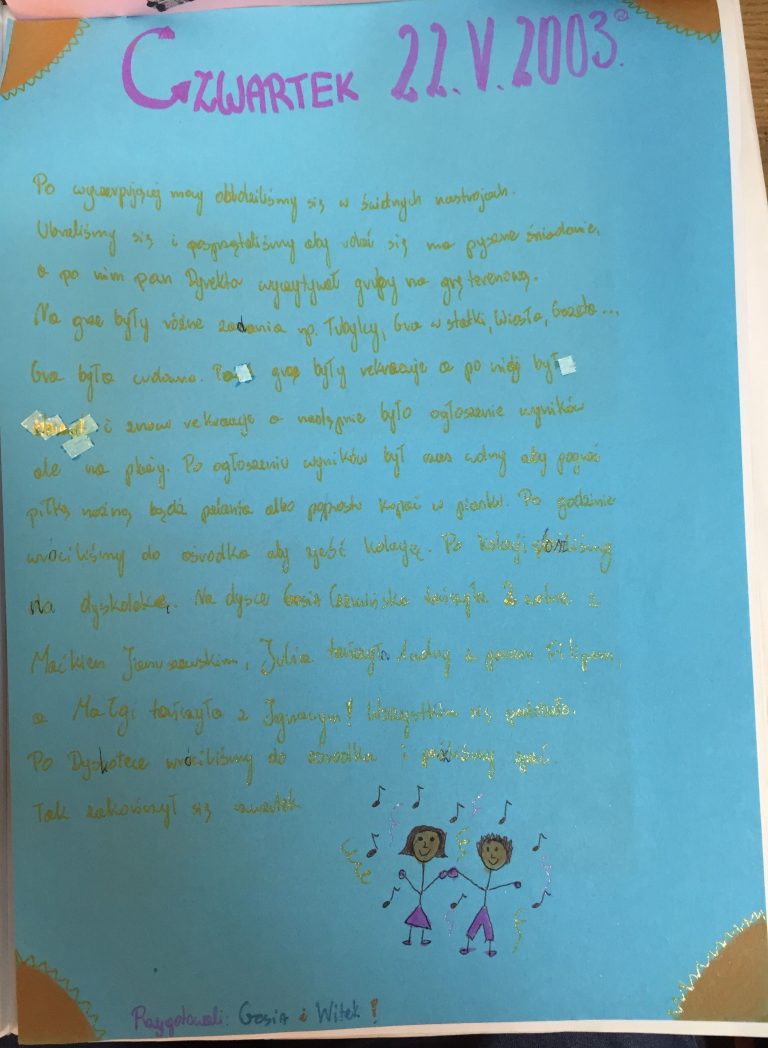 CZWARTEK 22.V.2003.
Po wyczerpującej nocy obudziliśmy się w świetnych nastrojach.
Ubraliśmy się i posprzątaliśmy aby udać się na pyszne śniadanie,
a po nim pan Dyrektor wyczytywał grupy na grę terenową.
Na grze były różne zadania np. Tubylcy, Gra w statki, Wiosła, Gazeta...
Gra była cudowna. Po grze były rekreacje a po niej był
i znow rekreacje a następnie było ogłoszenie wyników
ale na plaży. Po ogłoszeniu wyników był czas wolny aby pograć
piłką nożną bądź palanta albo poprostu kopać w piasku. Po godzinie
wróciliśmy do ośrodka aby zjeść kolację. Po kolacji
na dyskotekę. Na dysce Gosia tańczyła 2 wolne z
Maćkiem Januszewskim, Julia tańczyła z panem Filipem,
a Małgi tańczyła z Ignacym! Wszystkim się podobało.
Po Dyskotece wróciliśmy do ośrodka i poszliśmy spać.
Tak zakończył się czwartek
Przygotowali: Gosia i Witek!